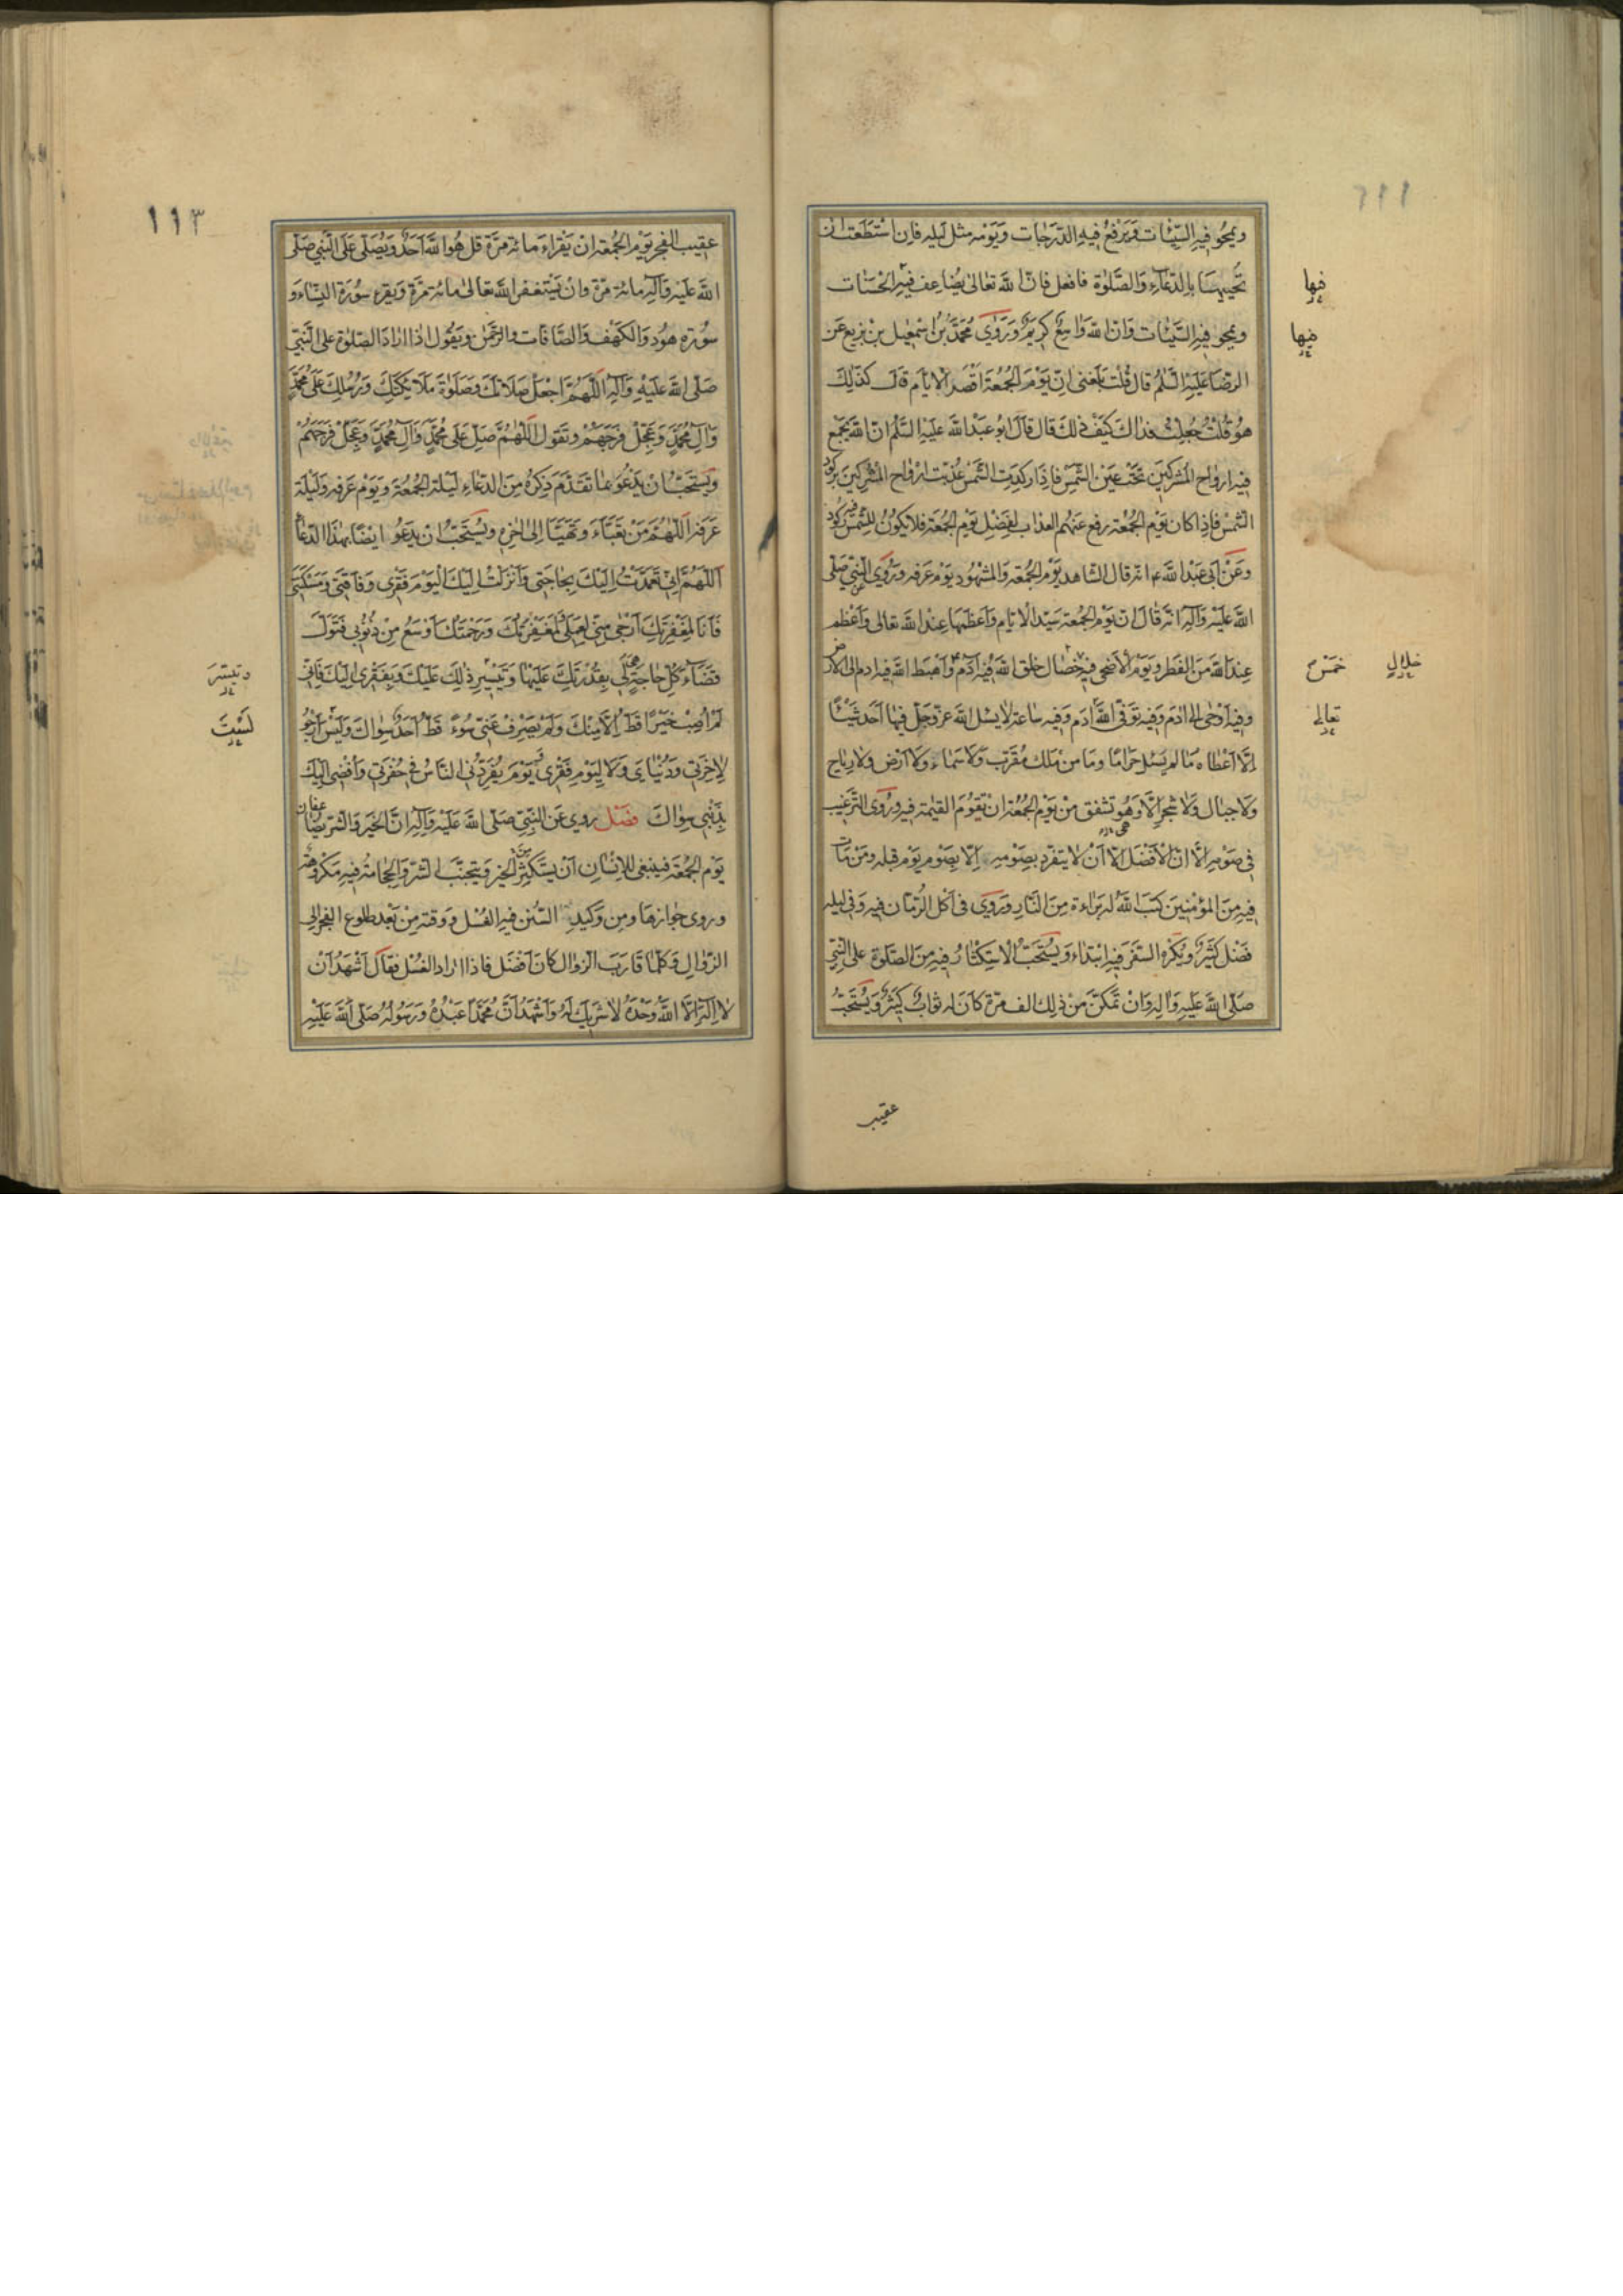 ويمحو فيه السيئات ويرفع فيه الدرجات ويومه مثل ليله فان استطعت ان
تحييهما بالدعاء والصلوة فافعل فان الله تعالى يضاعف فيه الحسنات
فيها
ويمحو فيه السيئات وان الله واسع كريم وروى محمد بن اسمعيل بن بزيع عن
فيها
الرضا عليه السلم قال قلت بلغنى ان يوم الجمعة اقصر الايام قال كذلك
هو قلت جعلت فداك كيف ذلك قال قال ابو عبد الله عليه السلم ان الله يجمع
فيه ارواح المشركين تحت عين الشمس فاذا ركدت الشمس عذبت ارواح المشركين بركود
الشمس فاذا كان يوم الجمعة رفع عنهم العذاب لفضل يوم الجمعة فلا يكون للشمس فيه ركود
وعن ابى عبد الله ع انه قال الشاهد يوم الجمعة والمشهود يوم عرفه وروى النبي صلى
الله عليه وآله انه قال ان يوم الجمعة سيد الايام واعظمها عند الله تعالى واعظم
عند الله من الفطر ويوم الاضحى فيه خصال خلق الله فيه آدم واهبط الله فيه ادم الى الارض
خمس خلال
وفيه اوحى الى ادم وفيه توفى الله ادم وفيه ساعة لا يسئل الله عز وجل فيها احد شيئا
تعالى
الا اعطاه ما لم يسئل حراما وما من ملك مقرب ولا سماء ولا ارض ولا رياح
ولا جبال ولا شجر الا وهو تشفق من يوم الجمعة ان تقوم القيمة فيه وروى الترغيب
فى صومه الا ان الافضل الا ان لا يتفرد بصومه الا بصوم يوم قبله ومن مات
فيه من المؤمنين كتب الله له براءة من النار وروى فى اكل الرمان فيه وفى ليله
فضل كثير ويكره السفر فيه ابتداء ويستحب الاستكثار فيه من الصلوة على النبي
صلى الله عليه واله وان تمكن من ذلك الف مرة كان له ثواب كثير ويستحب
عقيب
١١٣
عقيب الفجر يوم الجمعة ان يقراء مائة مرة قل هو الله احد ويصلى على النبي صلى
الله عليه وآله مائة مرة وان يستغفر الله تعالى مائة مرة ويقرء سورة النساء و
سورة هود والكهف والصافات والرحمن ويقول اذا اراد الصلوة على النبي
صلى الله عليه وآله اللهم اجعل صلاتك وصلوة ملائكتك ورسلك على محمد
وآل محمد وعجل فرجهم وتقول اللهم صل على محمد وآل محمد وعجل فرجهم
ويستحب ان يدعو بما تقدم ذكره من الدعاء ليلة الجمعة ويوم عرفه وليلة
عرفه اللهم من تعباء وتهيا الى اخره ويستحب ان يدعو ايضا بهذا الدعاء
اللهم انى تعمدت اليك بحاجتى وانزلت اليك اليوم فقرى وفاقتى ومسكنتى
فانا لمغفرتك ارجى منى لعملى ولمغفرتك ورحمتك اوسع من ذنوبى فتول
قضاء كل حاجة هى لى بقدرتك عليها وتيسير ذلك عليك وبفقرى اليك فانى
وتيسر
لم اصب خيرا قط الا منك ولم يصرف عنى سوء قط احد سواك وليس ارجو
لست
لاخرتى ودنياى ولا ليوم فقرى يوم يفردنى الناس فى حفرتى وافضى اليك
بذنبى سواك فصل روي عن النبي صلى الله عليه وآله ان الخير والشر يضاعفان
يوم الجمعة فينبغى للانسان ان يستكثر من الخير ويتجنب الشر والحجامة فيه مكروهة
وروى جوازها ومن وكيد السنن فيه الغسل ووقته من بعد طلوع الفجر الى
الزوال وكلما قارب الزوال كان افضل فاذا اراد الغسل فقال اشهد ان
لا اله الا الله وحده لا شريك له واشهد ان محمدا عبده ورسوله صلى الله عليه